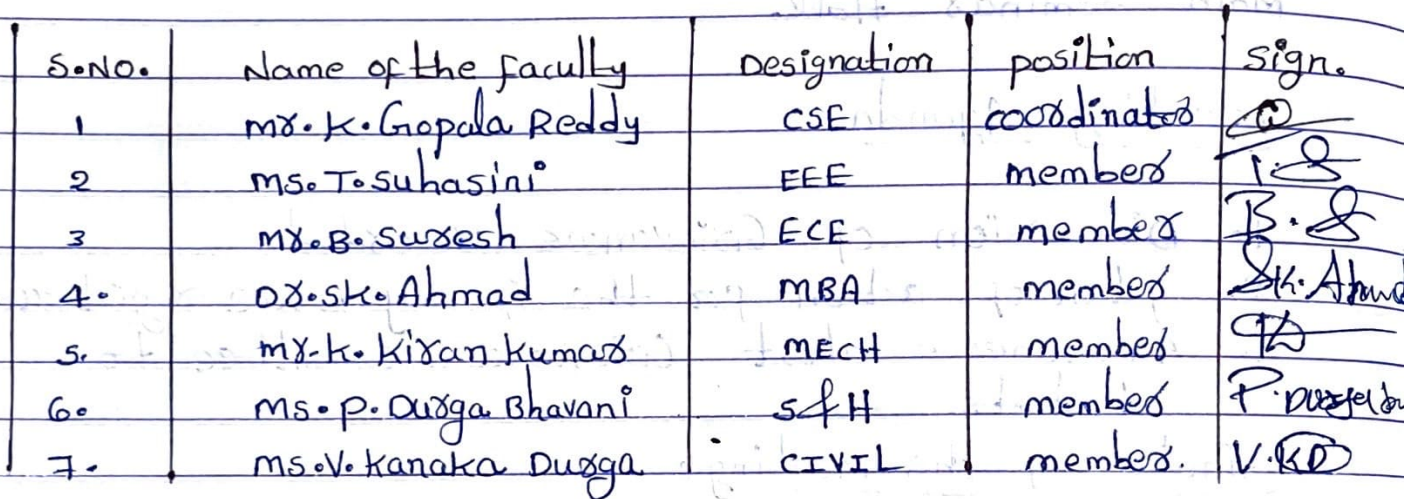 S.NO. Name of the faculty Designation position sign.
1 mr. K. Gopala Reddy CSE coordinator
2 ms. T. Suhasini EEE member
3 mr. B. Suresh ECE member B. S
4. Dr. SK. Ahmad MBA member SK. Ahmad
5. mr. K. Kiran Kumar MECH member
6. ms. P. Durga Bhavani S&H member
7. ms. V. Kanaka Durga CIVIL member. V. KD